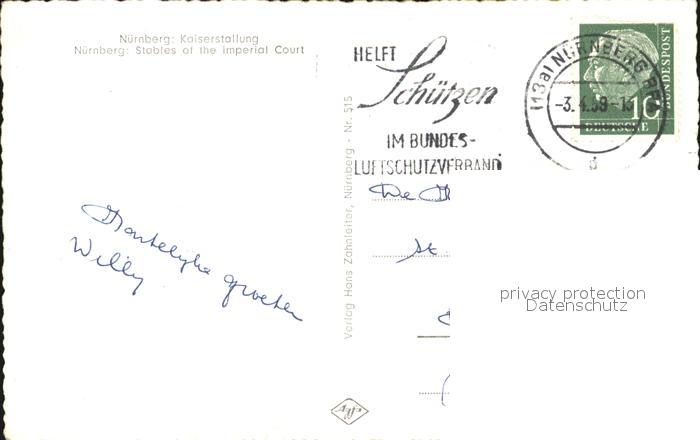 Nürnberg: Kaiserstallung
Nürnberg: Stables of the imperial Court
HELFT
Schützen
IM BUNDES-
LUFTSCHUTZVERBAND
(13a) NÜRNBERG
-3.4.59-1
a
10
DEUTSCHE
BUNDESPOST
Verlag Hans Zahnleiter, Nürnberg - Nr. 515
De
Hartelijke groeten
Willy
privacy protection
Datenschutz
Agfa